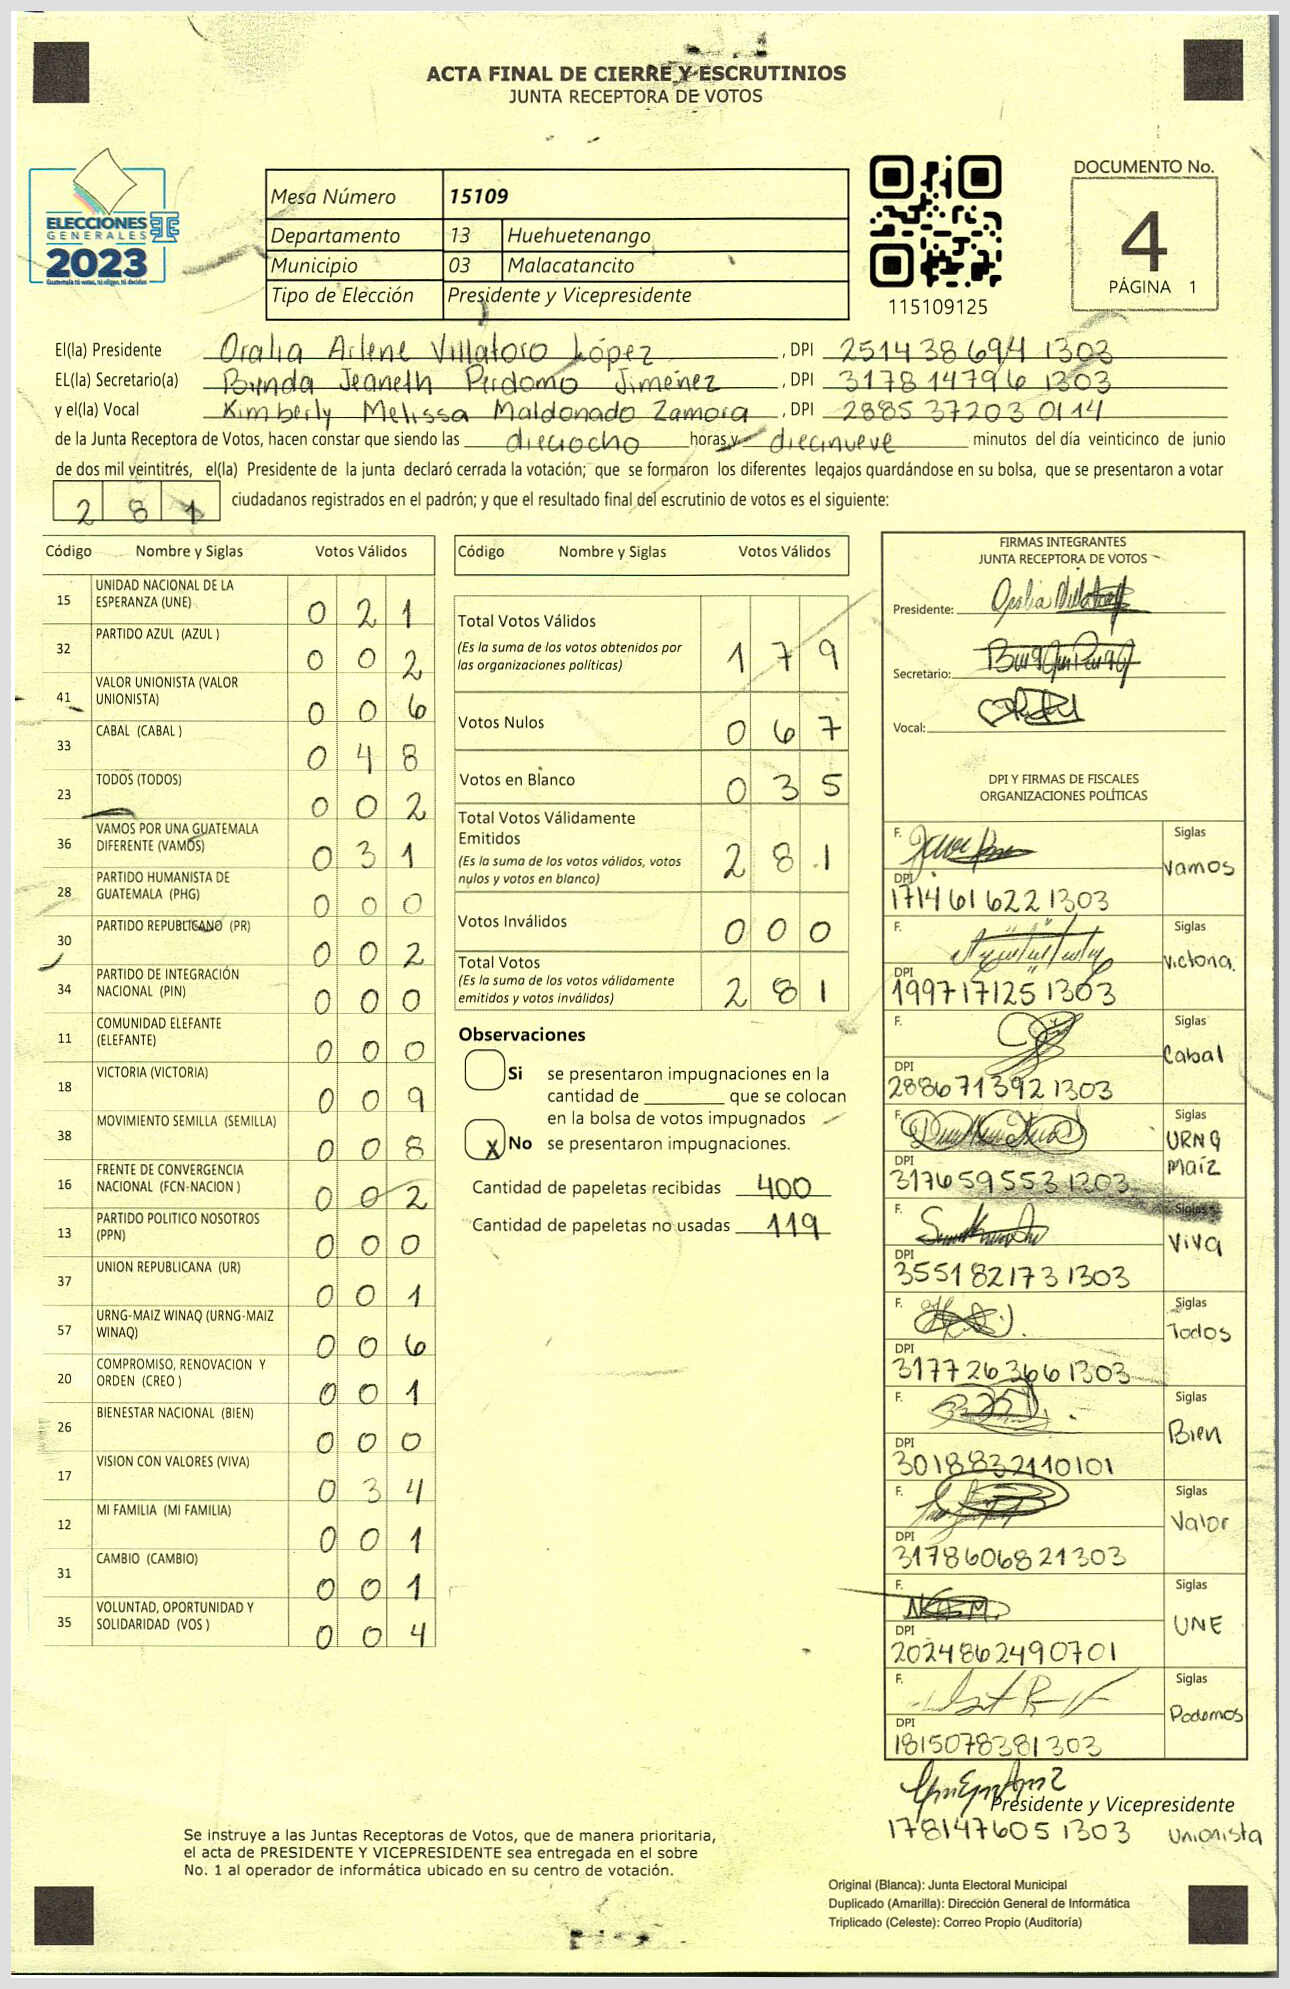 ACTA FINAL DE CIERRE Y ESCRUTINIOS
JUNTA RECEPTORA DE VOTOS
ELECCIONES
GENERALES
2023
Guatemala tú votas, tú eliges, tú decides
Mesa Número 15109
Departamento 13 Huehuetenango
Municipio 03 Malacatancito
Tipo de Elección Presidente y Vicepresidente
115109125
DOCUMENTO No.
4
PÁGINA 1
El(la) Presidente Oralia Arlene Villatoro López , DPI 2514 38694 1303
EL(la) Secretario(a) Brenda Jeaneth Perdomo Jiménez , DPI 3178 14796 1303
y el(la) Vocal Kimberly Melissa Maldonado Zamora , DPI 2885 37203 0114
de la Junta Receptora de Votos, hacen constar que siendo las dieciocho horas y diecinueve minutos del día veinticinco de junio
de dos mil veintitrés, el(la) Presidente de la junta declaró cerrada la votación; que se formaron los diferentes legajos quardándose en su bolsa, que se presentaron a votar
2 8 1 ciudadanos registrados en el padrón; y que el resultado final del escrutinio de votos es el siguiente:
Código Nombre y Siglas Votos Válidos
15 UNIDAD NACIONAL DE LA ESPERANZA (UNE) 0 2 1
32 PARTIDO AZUL (AZUL ) 0 0 2
41 VALOR UNIONISTA (VALOR UNIONISTA) 0 0 6
33 CABAL (CABAL ) 0 4 8
23 TODOS (TODOS) 0 0 2
36 VAMOS POR UNA GUATEMALA DIFERENTE (VAMOS) 0 3 1
28 PARTIDO HUMANISTA DE GUATEMALA (PHG) 0 0 0
30 PARTIDO REPUBLICANO (PR) 0 0 2
34 PARTIDO DE INTEGRACIÓN NACIONAL (PIN) 0 0 0
11 COMUNIDAD ELEFANTE (ELEFANTE) 0 0 0
18 VICTORIA (VICTORIA) 0 0 9
38 MOVIMIENTO SEMILLA (SEMILLA) 0 0 8
16 FRENTE DE CONVERGENCIA NACIONAL (FCN-NACION ) 0 0 2
13 PARTIDO POLITICO NOSOTROS (PPN) 0 0 0
37 UNION REPUBLICANA (UR) 0 0 1
57 URNG-MAIZ WINAQ (URNG-MAIZ WINAQ) 0 0 6
20 COMPROMISO, RENOVACION Y ORDEN (CREO ) 0 0 1
26 BIENESTAR NACIONAL (BIEN) 0 0 0
17 VISION CON VALORES (VIVA) 0 3 4
12 MI FAMILIA (MI FAMILIA) 0 0 1
31 CAMBIO (CAMBIO) 0 0 1
35 VOLUNTAD, OPORTUNIDAD Y SOLIDARIDAD (VOS ) 0 0 4
Código Nombre y Siglas Votos Válidos
Total Votos Válidos 1 7 9
(Es la suma de los votos obtenidos por
las organizaciones políticas)
Votos Nulos 0 6 7
Votos en Blanco 0 3 5
Total Votos Válidamente
Emitidos 2 8 1
(Es la suma de los votos válidos, votos
nulos y votos en blanco)
Votos Inválidos 0 0 0
Total Votos 2 8 1
(Es la suma de los votos válidamente
emitidos y votos inválidos)
Observaciones
Si se presentaron impugnaciones en la
cantidad de ________ que se colocan
en la bolsa de votos impugnados
x No se presentaron impugnaciones.
Cantidad de papeletas recibidas 400
Cantidad de papeletas no usadas 119
FIRMAS INTEGRANTES
JUNTA RECEPTORA DE VOTOS
Presidente:
Secretario:
Vocal:
DPI Y FIRMAS DE FISCALES
ORGANIZACIONES POLÍTICAS
F. Siglas
Vamos
DPI
1714 61622 1303
F. Siglas
Victoria.
DPI
1997171251303
F. Siglas
Cabal
DPI
2886713921303
F. Siglas
URNG
Maíz
DPI
3176595531303
F. Siglas
Viva
DPI
3551821731303
F. Siglas
Todos
DPI
3177263661303
F. Siglas
Bien
DPI
3018832110101
F. Siglas
Valor
DPI
3178606821303
F. Siglas
UNE
DPI
2024862490701
F. Siglas
Podemos
DPI
1815078381303
Presidente y Vicepresidente
1781476051303 Unionista
Se instruye a las Juntas Receptoras de Votos, que de manera prioritaria,
el acta de PRESIDENTE Y VICEPRESIDENTE sea entregada en el sobre
No. 1 al operador de informática ubicado en su centro de votación.
Original (Blanca): Junta Electoral Municipal
Duplicado (Amarilla): Dirección General de Informática
Triplicado (Celeste): Correo Propio (Auditoría)